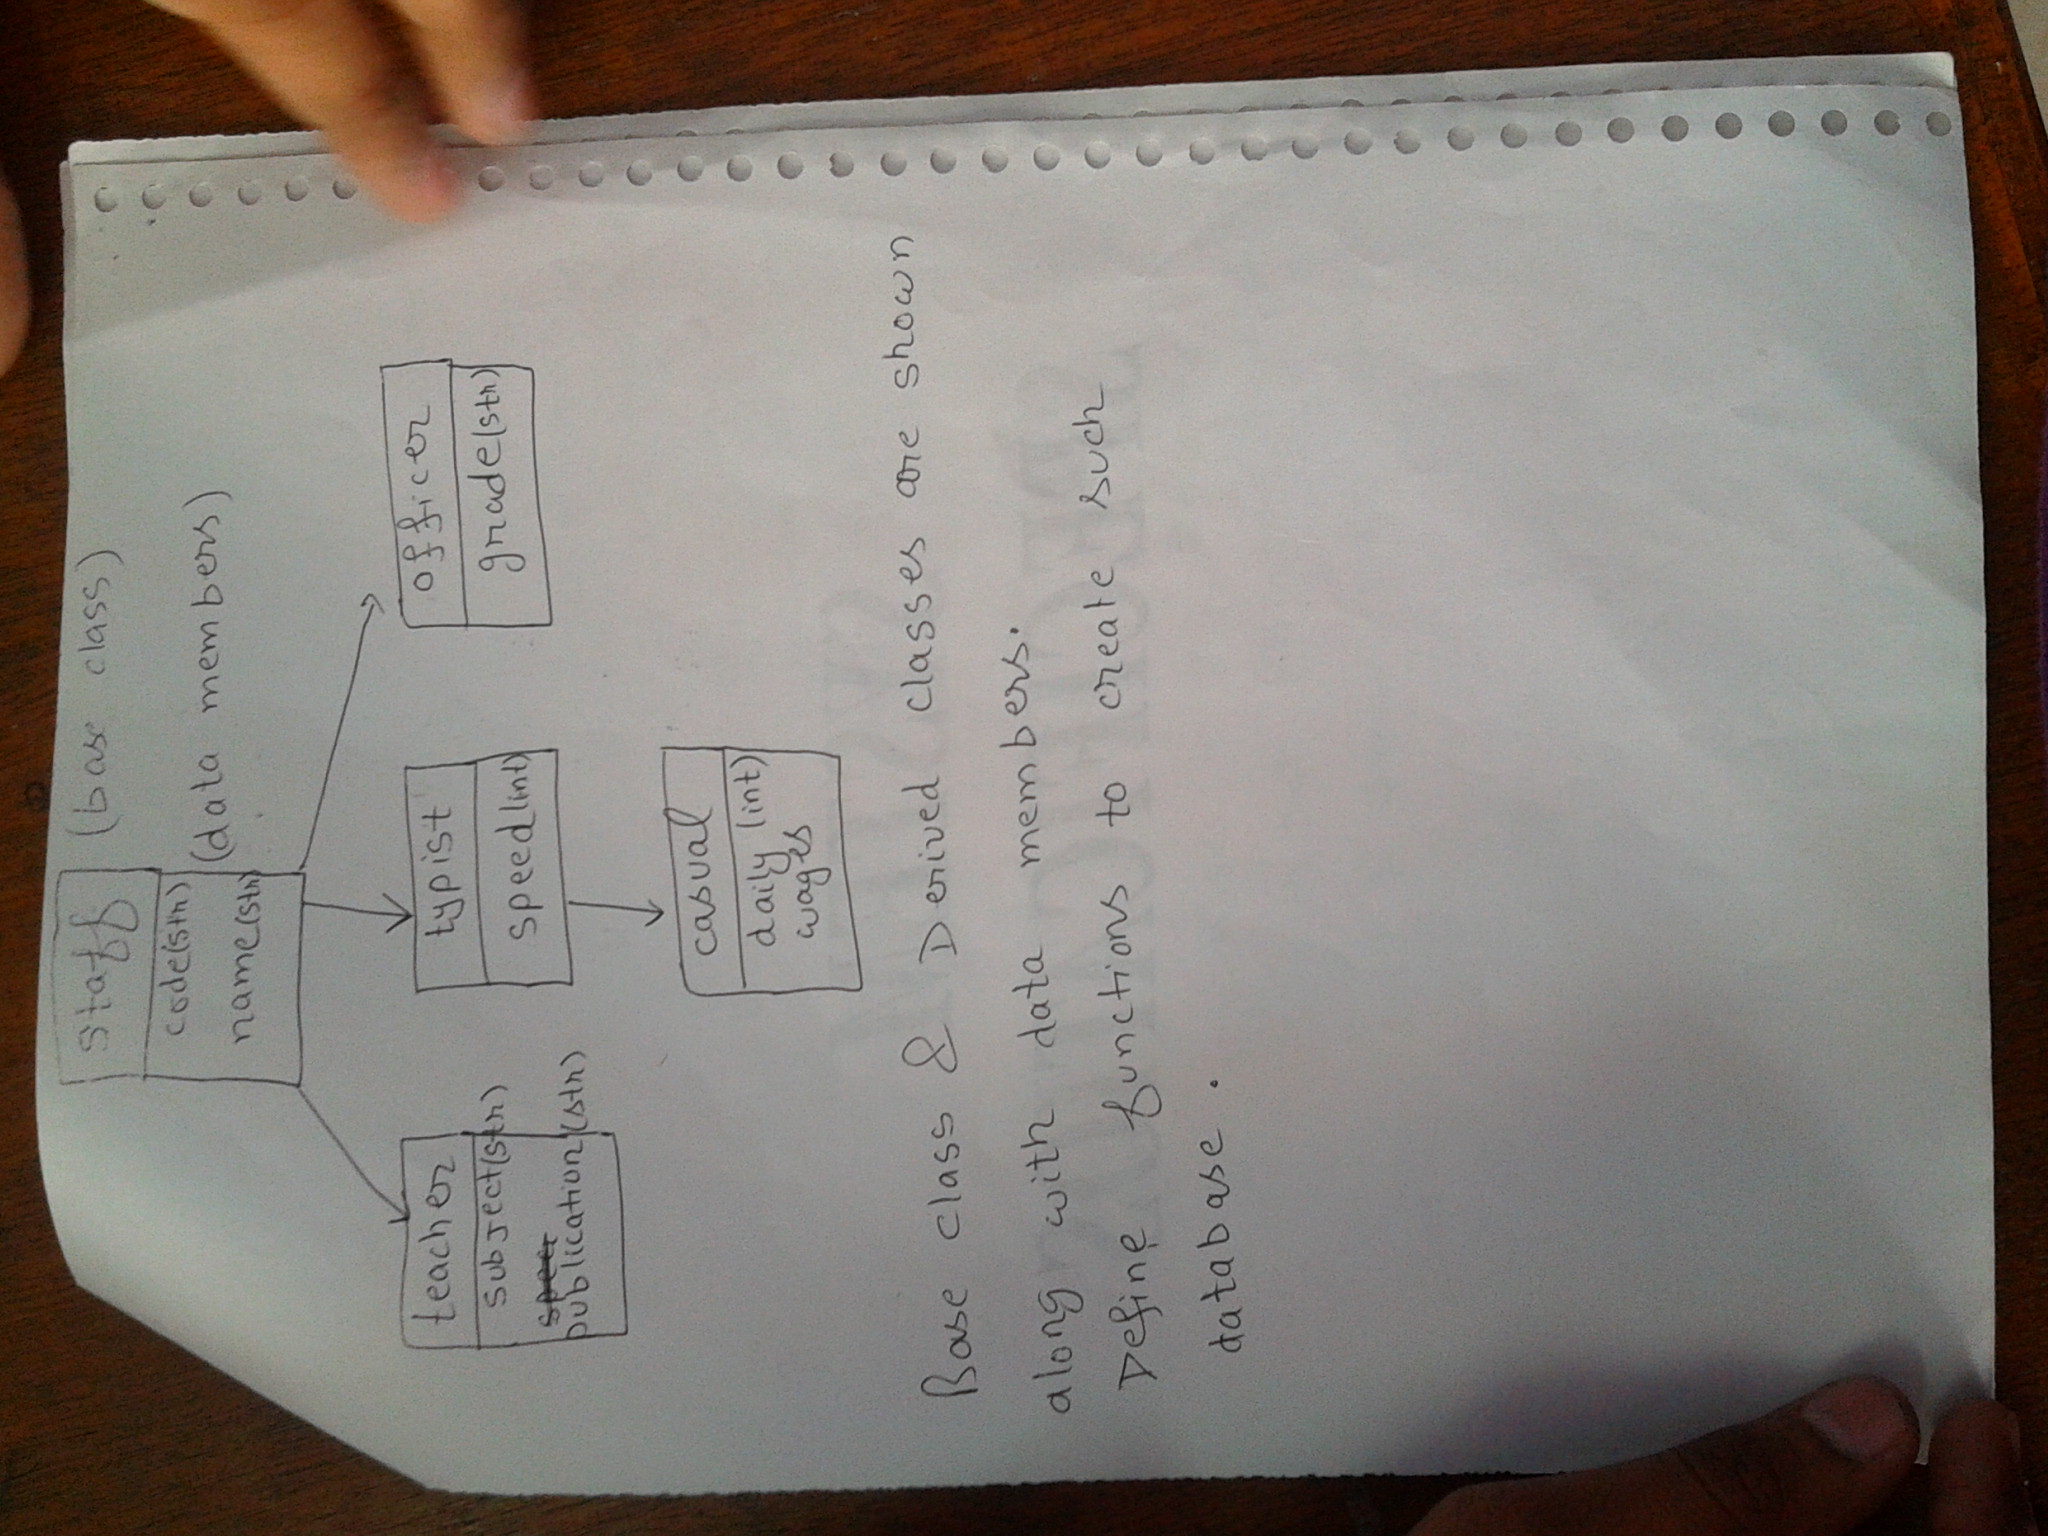 staff (base class)
code(str) (data members)
name(str)
teacher
subject(str)
publication(str)
typist
speed(int)
officer
grade(str)
casual
daily (int)
wages
Base class & Derived classes are shown
along with data members.
Define functions to create such
database.